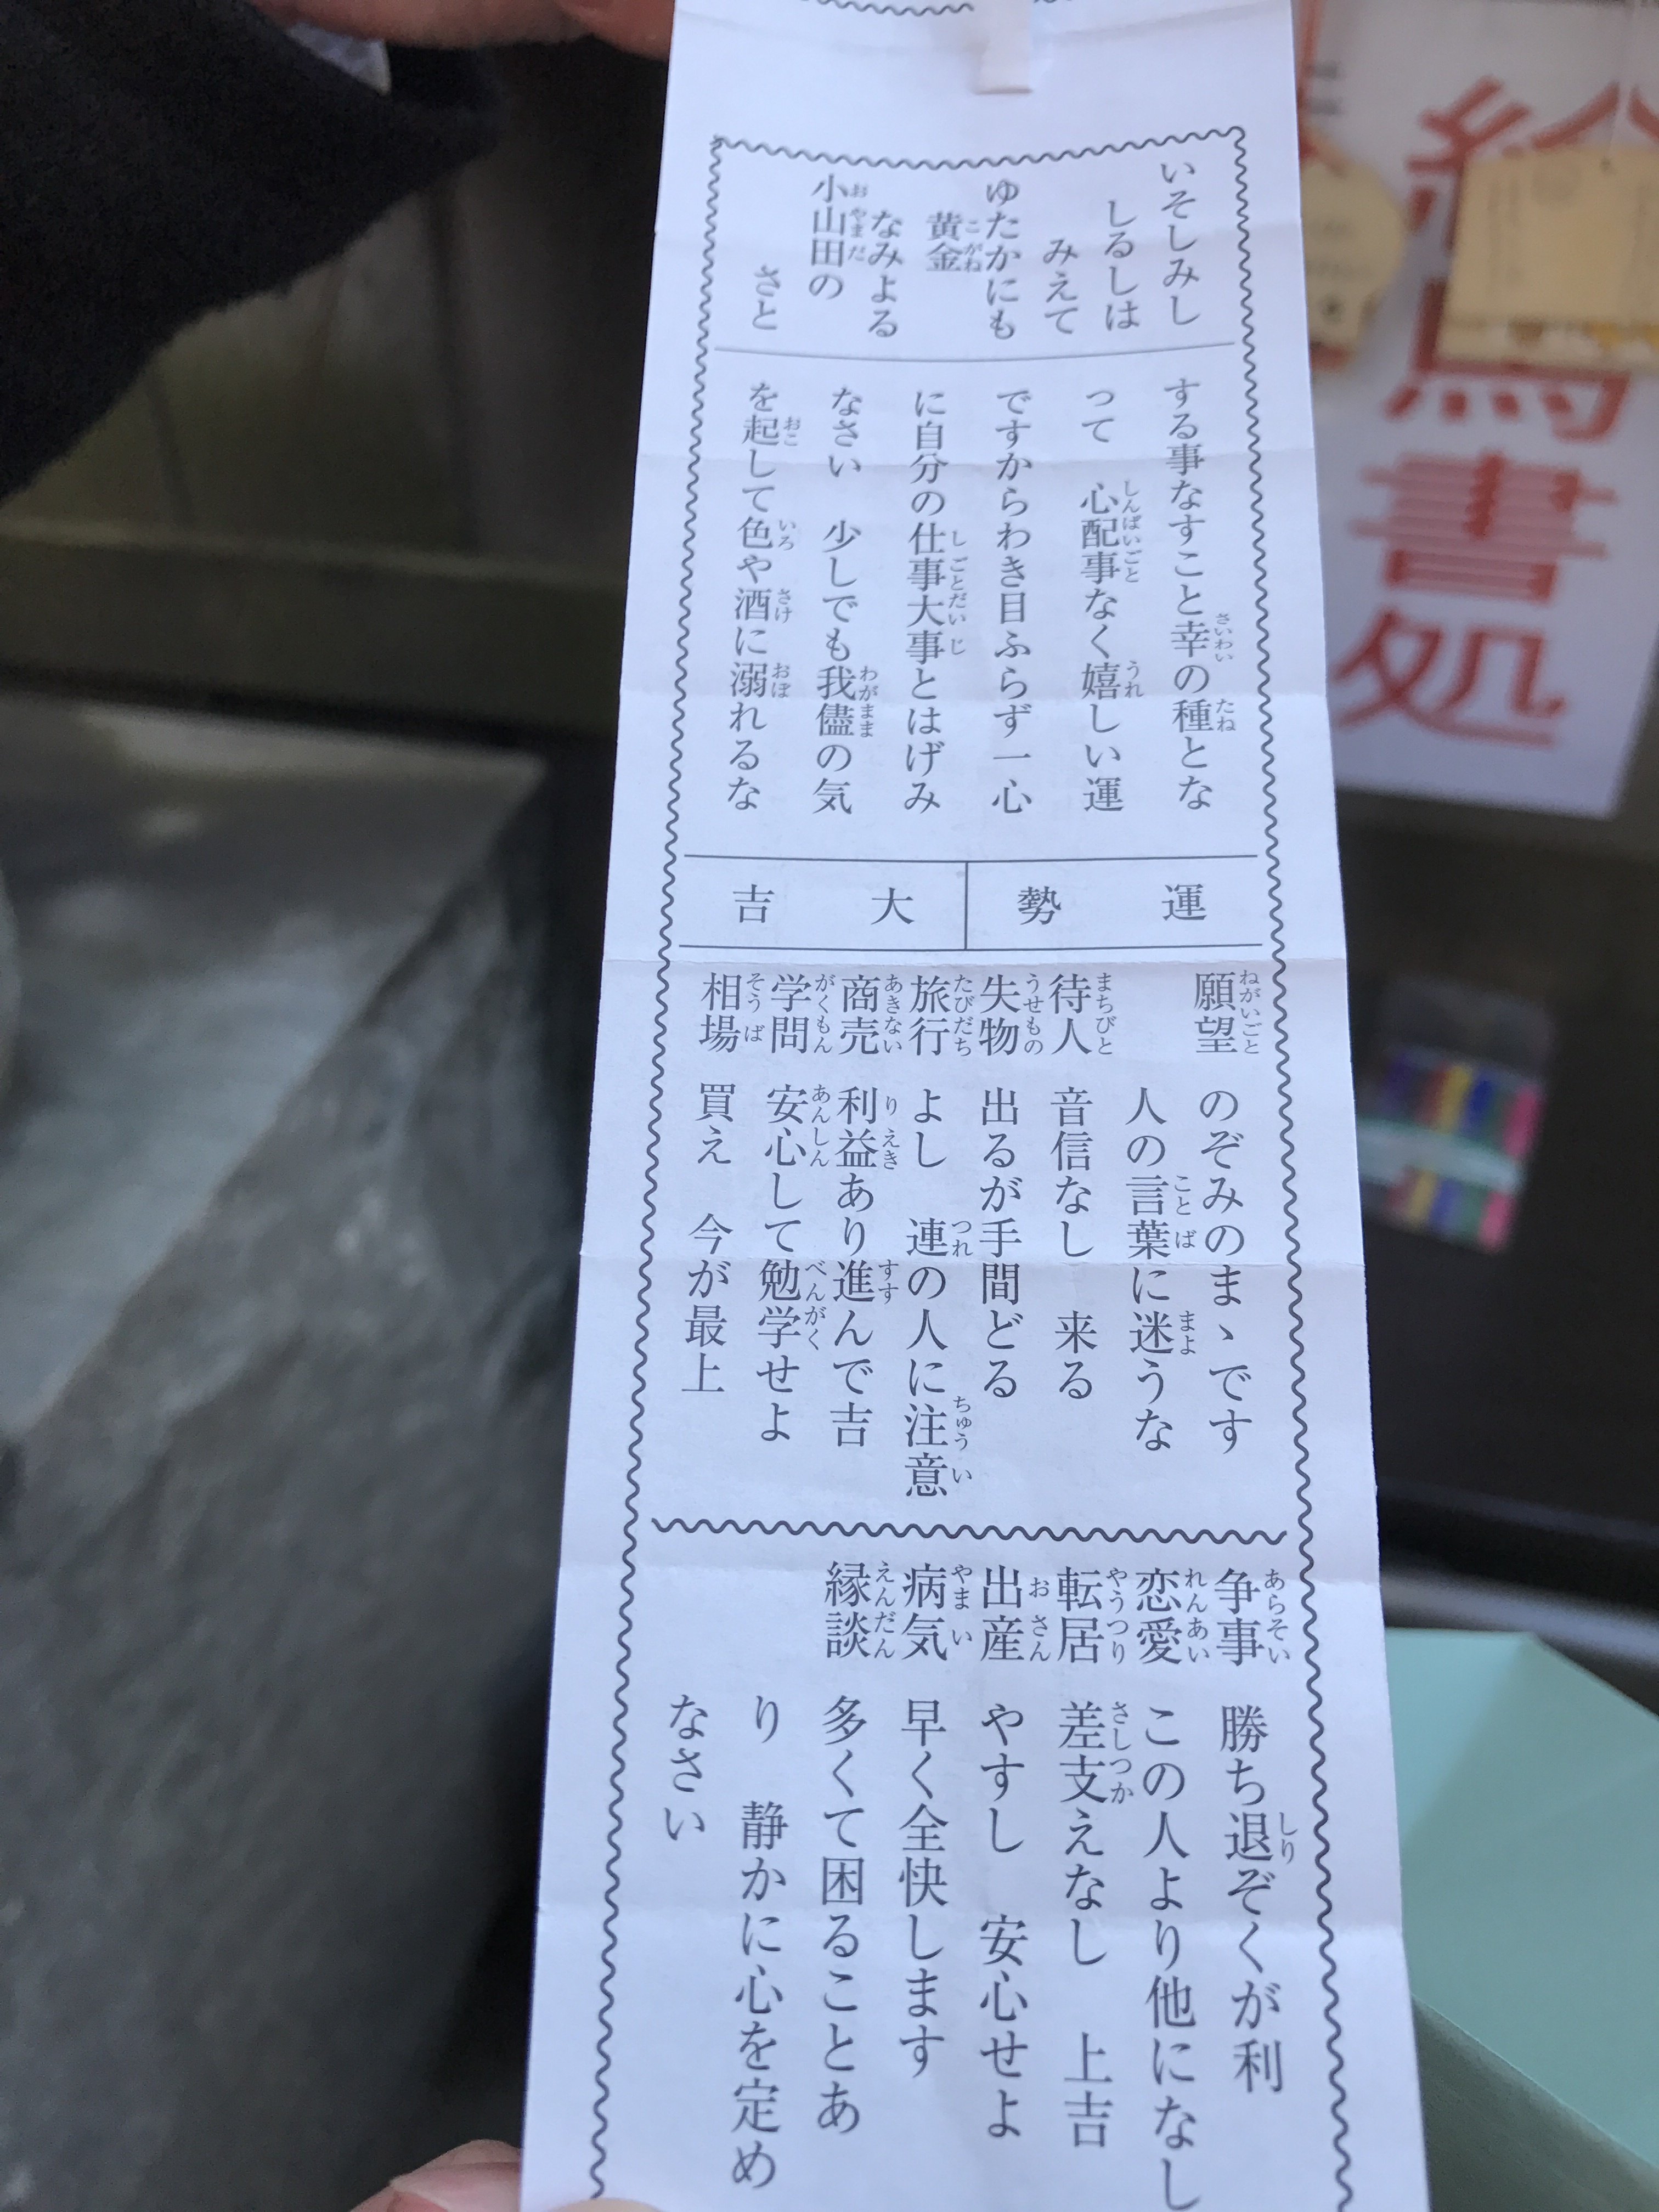 いそしみし
しるしは
みえて
ゆたかにも
黄金
なみよる
小山田の
さと
する事なすこと幸の種とな
って 心配事なく嬉しい運
ですからわき目ふらず一心
に自分の仕事大事とはげみ
なさい 少しでも我儘の気
を起して色や酒に溺れるな
運勢 大吉
願望 のぞみのまゝです
人の言葉に迷うな
待人 音信なし 来る
失物 出るが手間どる
旅行 よし 連の人に注意
商売 利益あり進んで吉
学問 安心して勉学せよ
相場 買え 今が最上
争事 勝ち退ぞくが利
恋愛 この人より他になし
転居 差支えなし 上吉
出産 やすし 安心せよ
病気 早く全快します
縁談 多くて困ることあ
り 静かに心を定め
なさい
絵馬書処